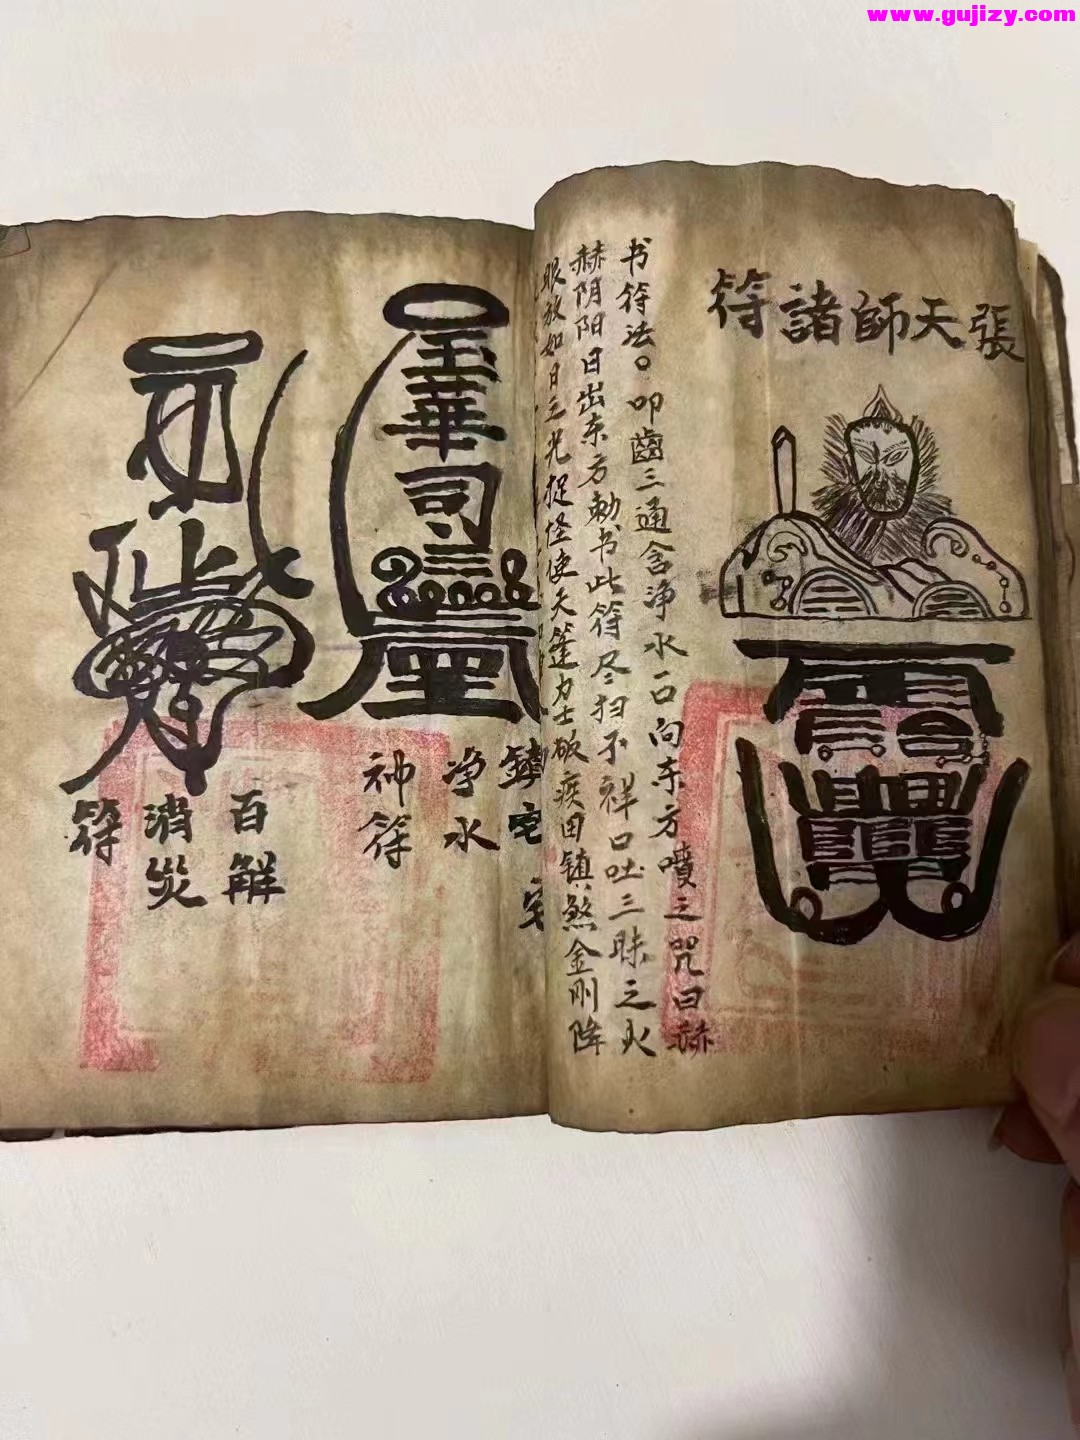 www.gujizy.com
張天師諸符
书符法。叩齒三通含净水一口向东方噴之咒曰赫
赫阴阳日出东方勅书此符尽扫不祥口吐三昧之火
眼放如日之光捉怪使天篷力士破疾田镇煞金刚降
玉華司
鎮宅
净水
神符
百解
消災
符